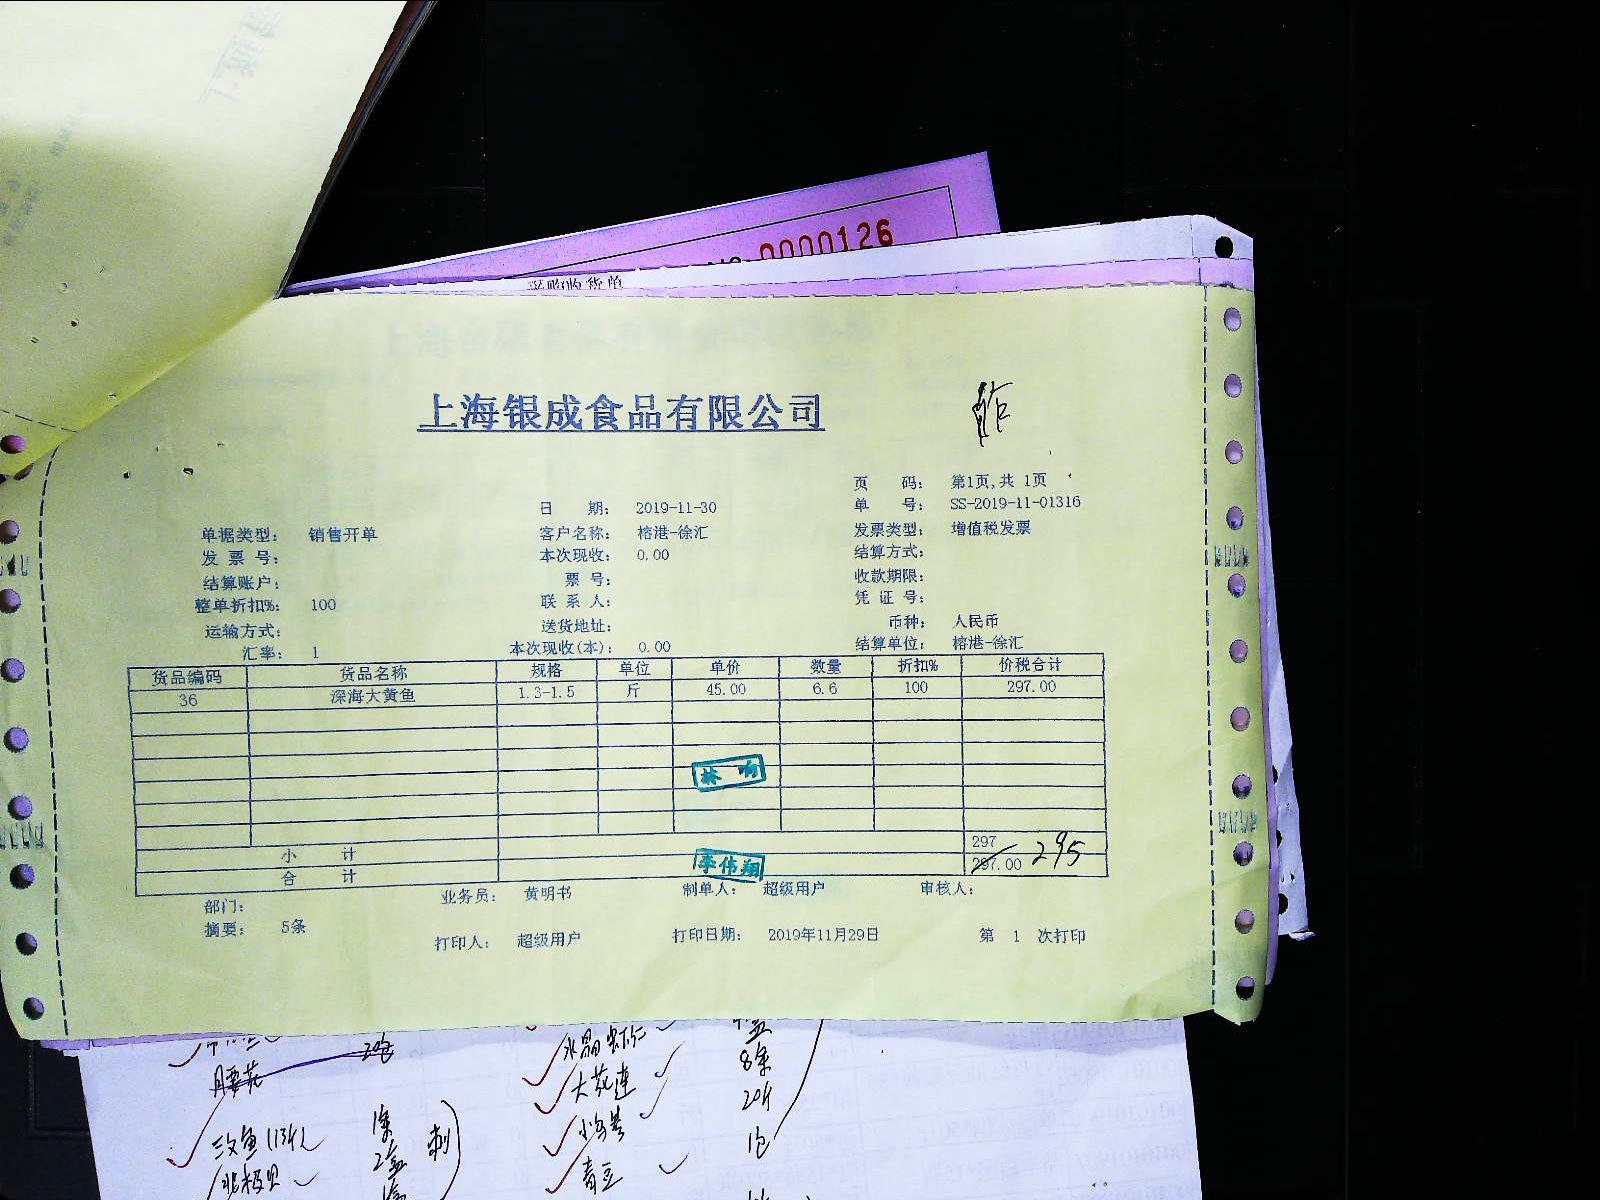 0000126
采购收货单
上海银成食品有限公司
页 码: 第1页,共 1页
日 期: 2019-11-30 单 号: SS-2019-11-01316
单据类型: 销售开单 客户名称: 榕港-徐汇 发票类型: 增值税发票
发 票 号: 本次现收: 0.00 结算方式:
结算账户: 票 号: 收款期限:
整单折扣%: 100 联 系 人: 凭 证 号:
运输方式: 送货地址: 币种: 人民币
汇率: 1 本次现收(本): 0.00 结算单位: 榕港-徐汇
货品编码 货品名称 规格 单位 单价 数量 折扣% 价税合计
36 深海大黄鱼 1.3-1.5 斤 45.00 6.6 100 297.00
林 响
小 计 297
合 计 李伟翔 297.00 295
部门: 业务员: 黄明书 制单人: 超级用户 审核人:
摘要: 5条 打印人: 超级用户 打印日期: 2019年11月29日 第 1 次打印
水晶虾仁
8条
大花莲 20斤
三文鱼 1条 刺 1包
北极贝 2盒 青豆